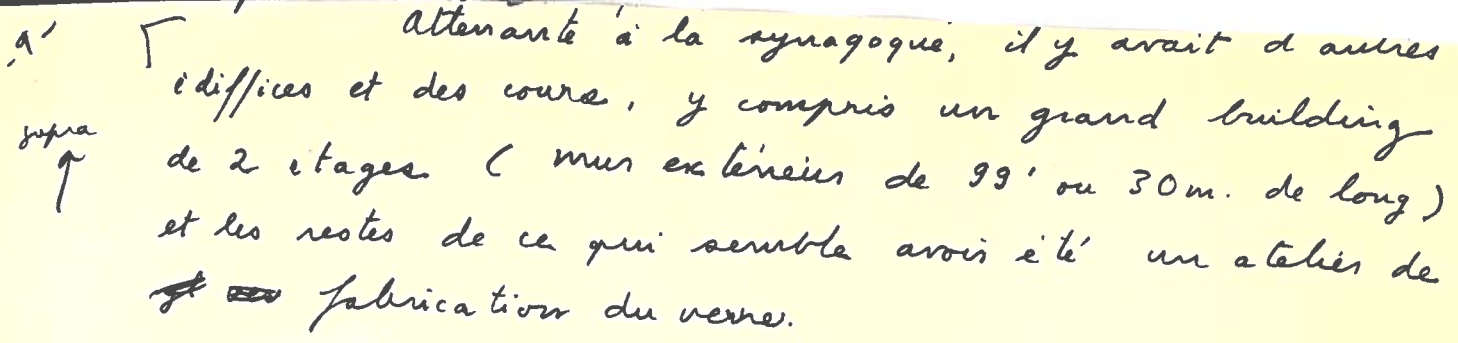 a' Attenante à la synagogue, il y avait d'autres
édiffices et des cours, y compris un grand building
supra de 2 étages (mur extérieur de 99' ou 30 m. de long)
et les restes de ce qui semble avoir été un atelier de
fabrication du verre.